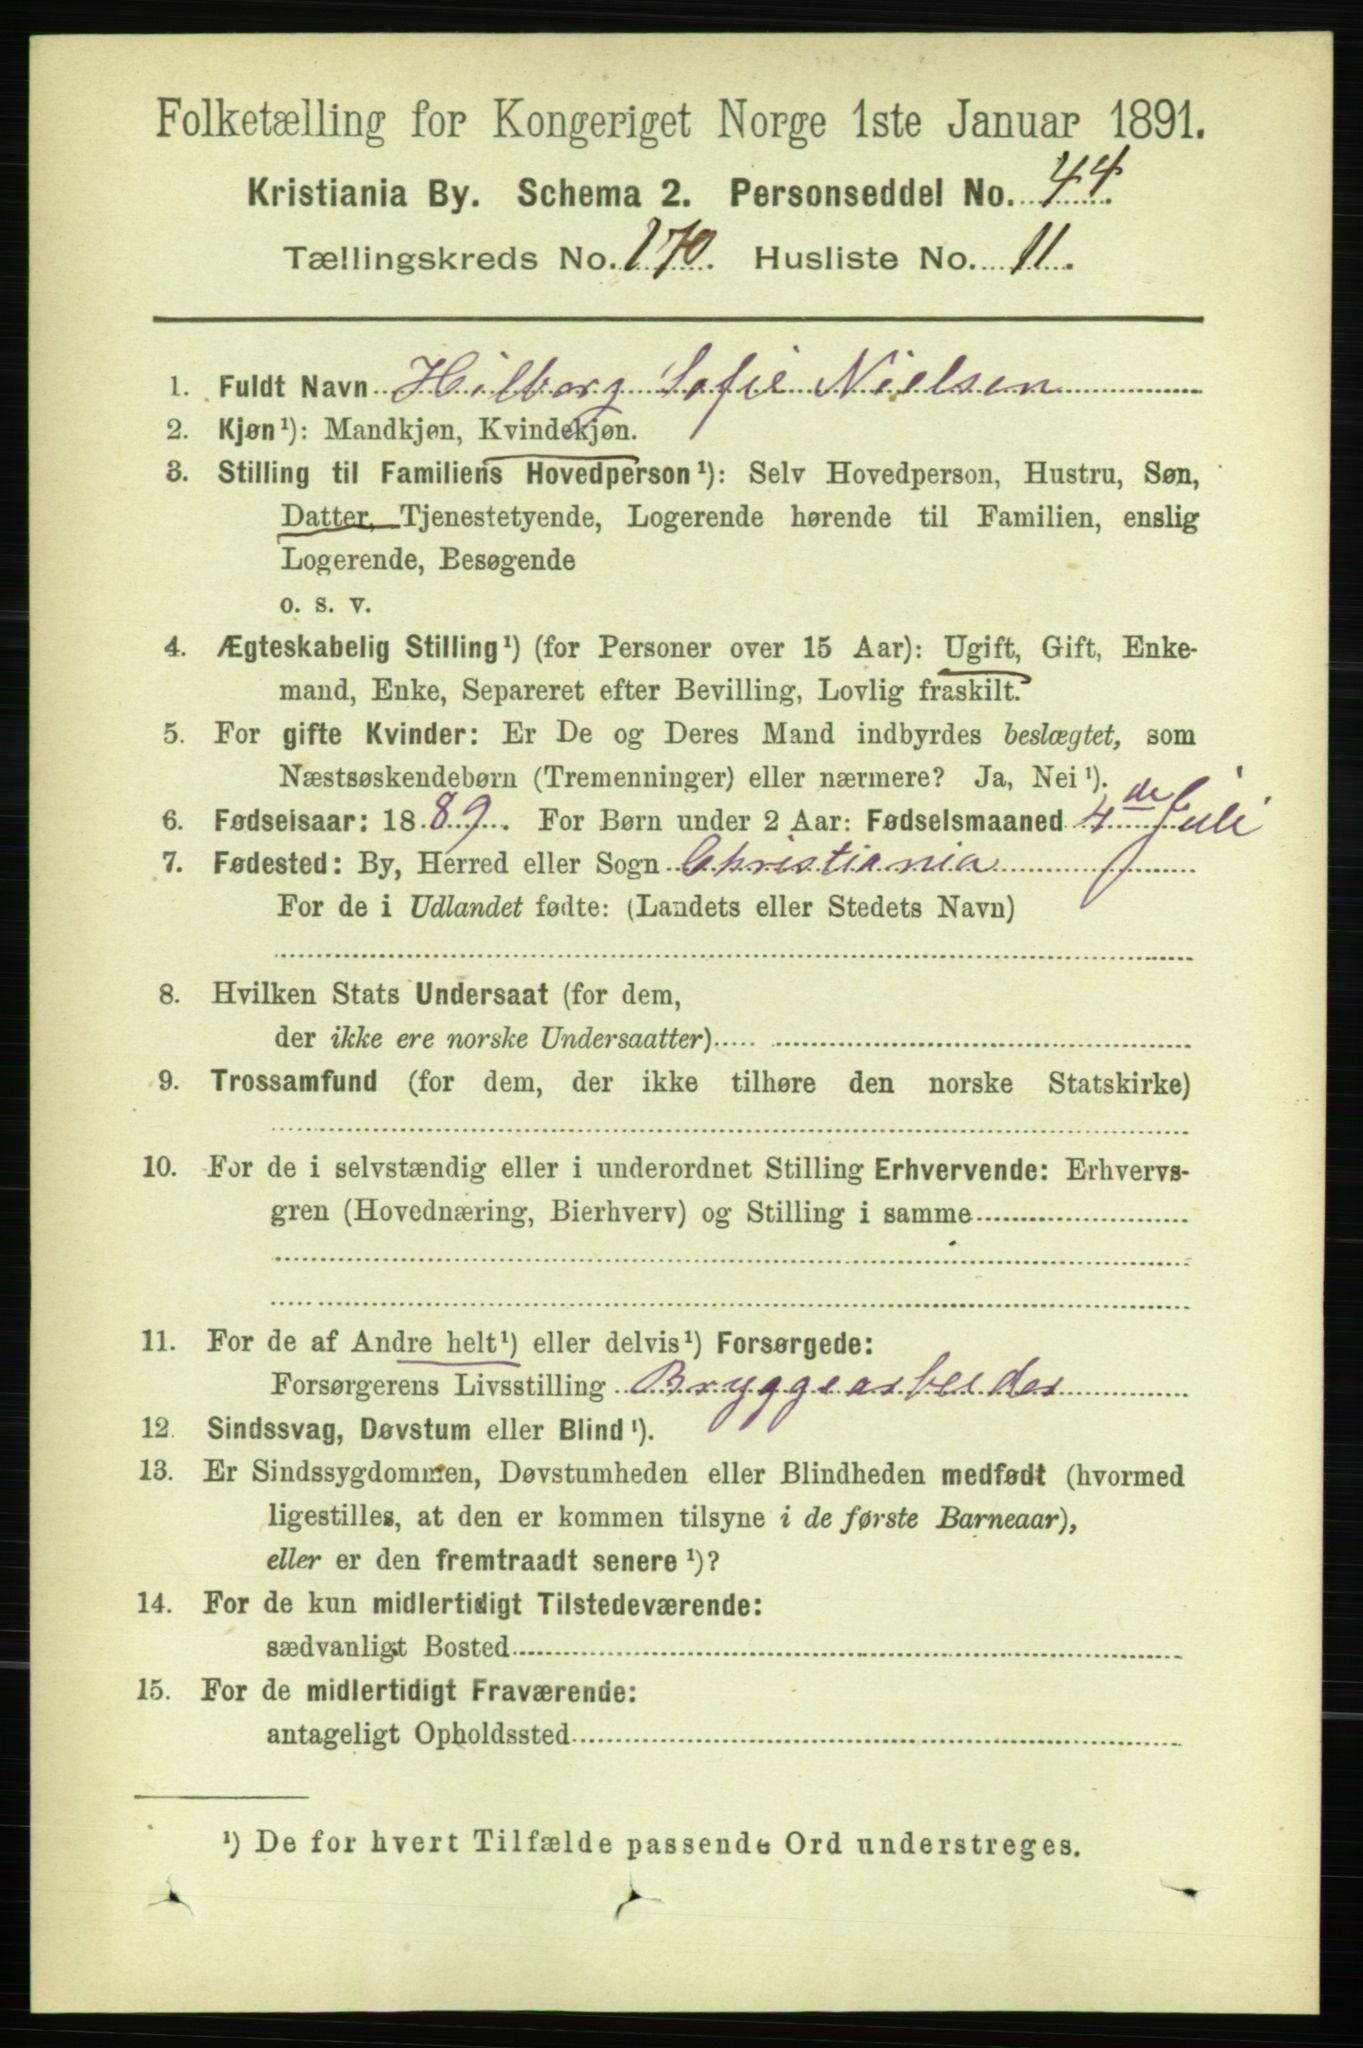 Folketælling for Kongeriget Norge 1ste Januar 1891.
Kristiania By. Schema 2. Personseddel No. 44.
Tællingskreds No. 170. Husliste No. 11.
1. Fuldt Navn Hilborg Sofie Nielsen
2. Kjøn¹): Mandkjøn, Kvindekjøn.
3. Stilling til Familiens Hovedperson¹): Selv Hovedperson, Hustru, Søn,
Datter, Tjenestetyende, Logerende hørende til Familien, enslig
Logerende, Besøgende
o. s. v.
4. Ægteskabelig Stilling¹) (for Personer over 15 Aar): Ugift, Gift, Enke-
mand, Enke, Separeret efter Bevilling, Lovlig fraskilt.
5. For gifte Kvinder: Er De og Deres Mand indbyrdes beslægtet, som
Næstsøskendebørn (Tremenninger) eller nærmere? Ja, Nei¹).
6. Fødselsaar: 1889. For Børn under 2 Aar: Fødselsmaaned 4de Juli
7. Fødested: By, Herred eller Sogn Christiania
For de i Udlandet fødte: (Landets eller Stedets Navn)
8. Hvilken Stats Undersaat (for dem,
der ikke ere norske Undersaatter)
9. Trossamfund (for dem, der ikke tilhøre den norske Statskirke)
10. For de i selvstændig eller i underordnet Stilling Erhvervende: Erhvervs-
gren (Hovednæring, Bierhverv) og Stilling i samme
11. For de af Andre helt¹) eller delvis¹) Forsørgede:
Forsørgerens Livsstilling Bryggearbeider
12. Sindssvag, Døvstum eller Blind¹).
13. Er Sindssygdommen, Døvstumheden eller Blindheden medfødt (hvormed
ligestilles, at den er kommen tilsyne i de første Barneaar),
eller er den fremtraadt senere¹)?
14. For de kun midlertidigt Tilstedeværende:
sædvanligt Bosted
15. For de midlertidigt Fraværende:
antageligt Opholdssted
¹) De for hvert Tilfælde passende Ord understreges.